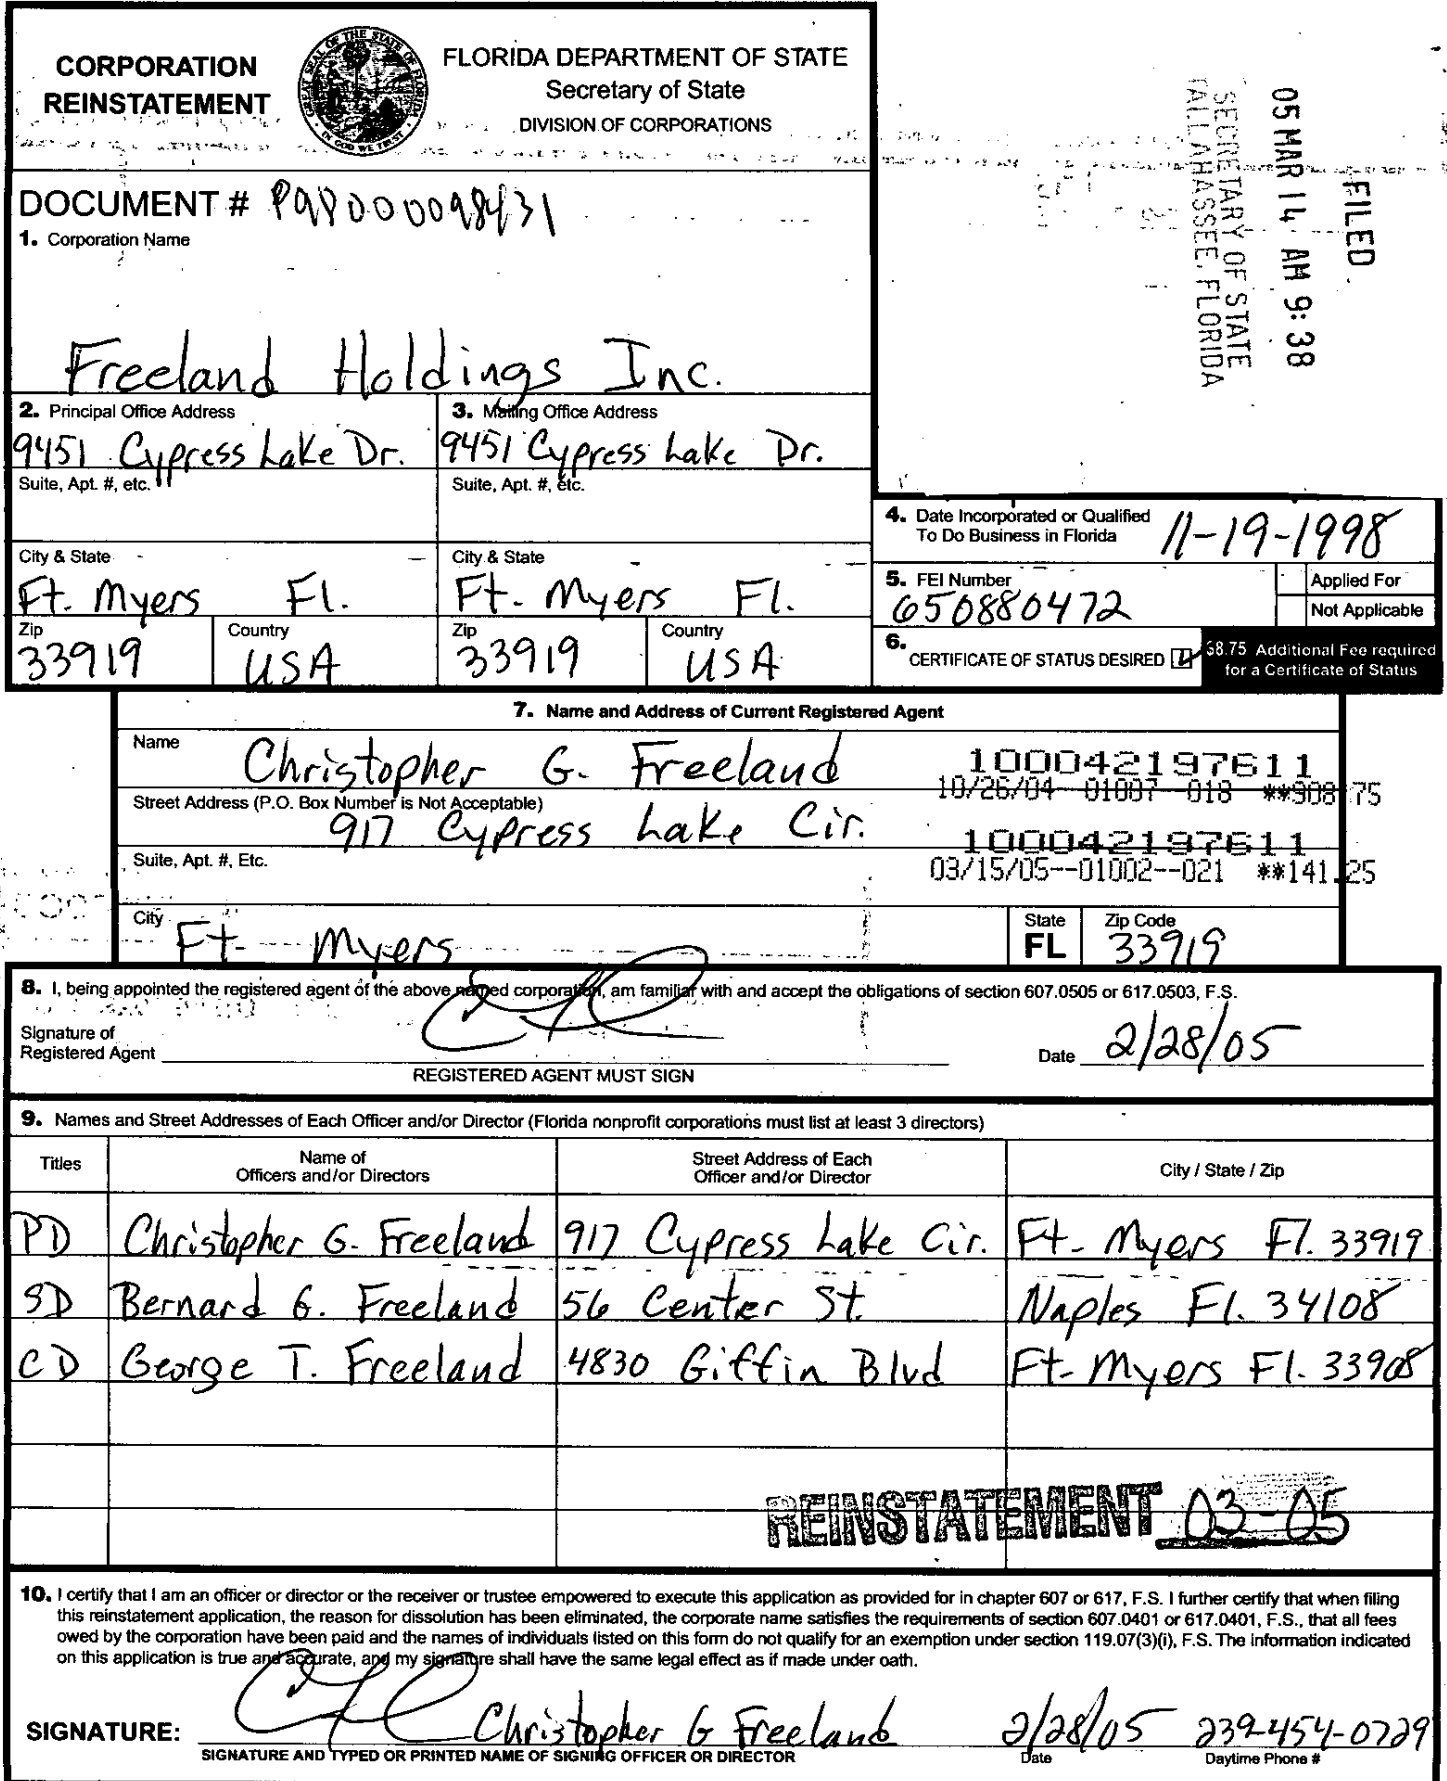 CORPORATION
REINSTATEMENT
GREAT SEAL OF THE STATE OF FLORIDA
IN GOD WE TRUST
FLORIDA DEPARTMENT OF STATE
Secretary of State
DIVISION OF CORPORATIONS
FILED
05 MAR 14 AM 9:38
SECRETARY OF STATE
TALLAHASSEE, FLORIDA
DOCUMENT # P98000098431
1. Corporation Name
Freeland Holdings Inc.
2. Principal Office Address
9451 Cypress Lake Dr.
Suite, Apt. #, etc.
City & State
Ft. Myers Fl.
Zip
33919
Country
USA
3. Mailing Office Address
9451 Cypress Lake Dr.
Suite, Apt. #, etc.
City & State
Ft. Myers Fl.
Zip
33919
Country
USA
4. Date Incorporated or Qualified
To Do Business in Florida
11-19-1998
5. FEI Number
650880472
Applied For
Not Applicable
6. CERTIFICATE OF STATUS DESIRED
$8.75 Additional Fee required
for a Certificate of Status
7. Name and Address of Current Registered Agent
Name
Christopher G. Freeland
100042197611
10/26/04--01007--018 **908.75
Street Address (P.O. Box Number is Not Acceptable)
917 Cypress Lake Cir.
100042197611
03/15/05--01002--021 **141.25
Suite, Apt. #, Etc.
City
Ft. Myers
State
FL
Zip Code
33919
8. I, being appointed the registered agent of the above named corporation, am familiar with and accept the obligations of section 607.0505 or 617.0503, F.S.
Signature of
Registered Agent
REGISTERED AGENT MUST SIGN
Date 2/28/05
9. Names and Street Addresses of Each Officer and/or Director (Florida nonprofit corporations must list at least 3 directors)
Titles
Name of
Officers and/or Directors
Street Address of Each
Officer and/or Director
City / State / Zip
PD Christopher G. Freeland 917 Cypress Lake Cir. Ft. Myers Fl. 33919
SD Bernard G. Freeland 56 Center St. Naples Fl. 34108
CD George T. Freeland 4830 Giffin Blvd Ft. Myers Fl. 33908
REINSTATEMENT 03-05
10. I certify that I am an officer or director or the receiver or trustee empowered to execute this application as provided for in chapter 607 or 617, F.S. I further certify that when filing
this reinstatement application, the reason for dissolution has been eliminated, the corporate name satisfies the requirements of section 607.0401 or 617.0401, F.S., that all fees
owed by the corporation have been paid and the names of individuals listed on this form do not qualify for an exemption under section 119.07(3)(i), F.S. The information indicated
on this application is true and accurate, and my signature shall have the same legal effect as if made under oath.
SIGNATURE: Christopher G Freeland 2/28/05 239-454-0729
SIGNATURE AND TYPED OR PRINTED NAME OF SIGNING OFFICER OR DIRECTOR
Date
Daytime Phone #